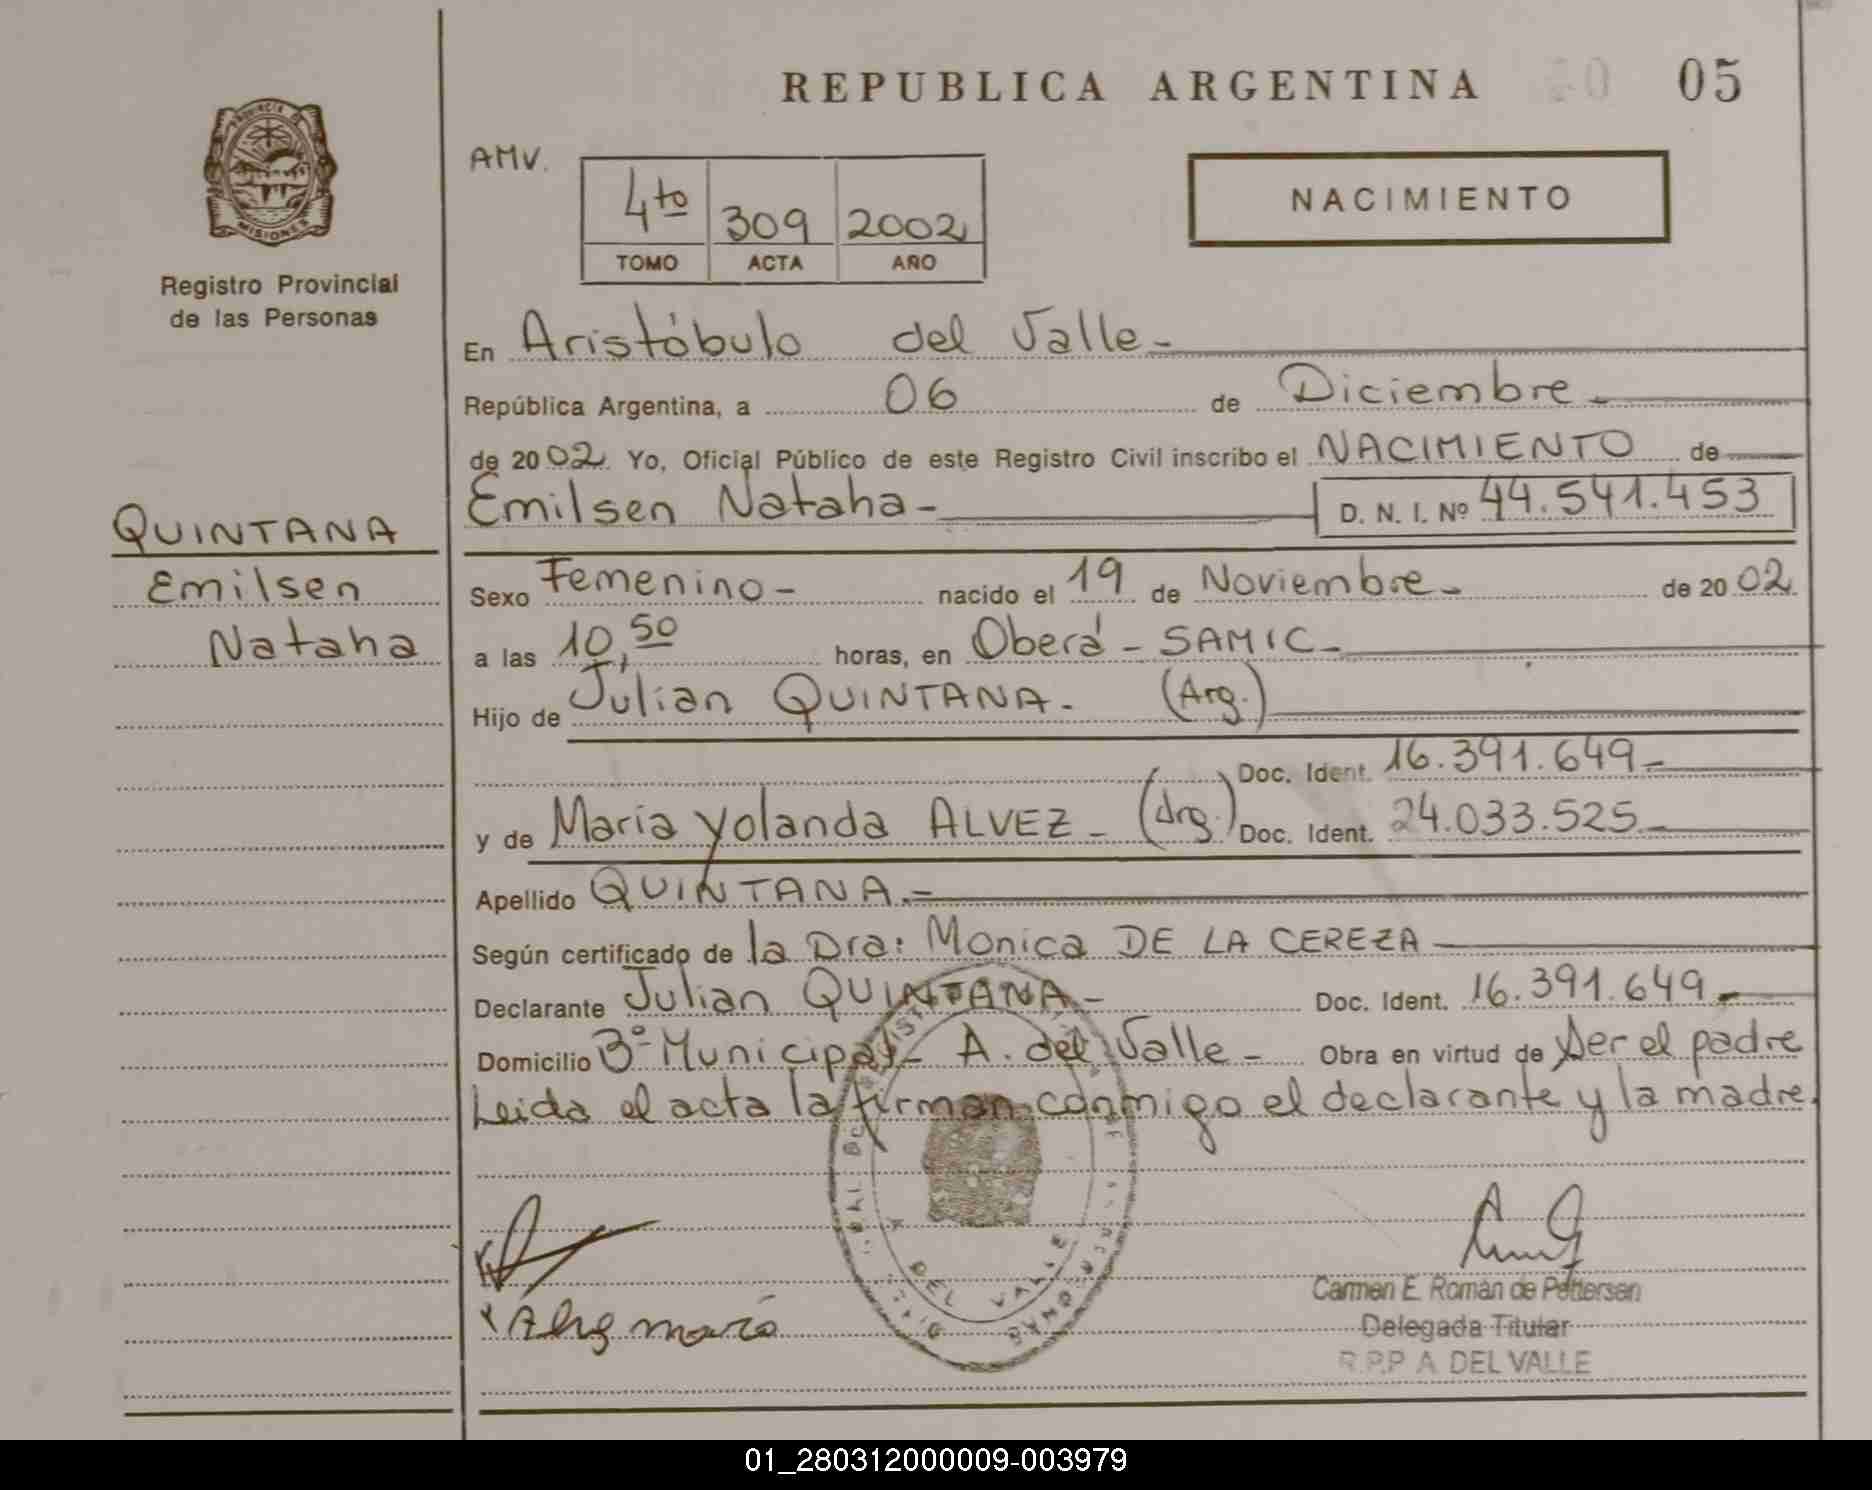 REPUBLICA ARGENTINA 05
PROVINCIA DE
MISIONES
Registro Provincial
de las Personas
AMV.
4to 309 2002
TOMO ACTA AÑO
NACIMIENTO
En Aristóbulo del Valle-
República Argentina, a 06 de Diciembre-
de 2002. Yo, Oficial Público de este Registro Civil inscribo el NACIMIENTO de
Emilsen Nataha- D. N. I. Nº 44.541.453
QUINTANA
Emilsen
Nataha
Sexo Femenino- nacido el 19 de Noviembre- de 2002
a las 10,50 horas, en Oberá - SAMIC-
Hijo de Julian QUINTANA- (Arg.)
Doc. Ident. 16.391.649-
y de Maria Yolanda ALVEZ- (Arg.) Doc. Ident. 24.033.525-
Apellido QUINTANA.=
Según certificado de la Dra: Monica DE LA CEREZA
Declarante Julian QUINTANA- Doc. Ident. 16.391.649-
Domicilio Bº Municipal- A. del Valle- Obra en virtud de Ser el padre
Leida el acta la firman conmigo el declarante y la madre.
DEL VALLE
Carmen E. Román de Pettersen
Delegada Titular
R.P.P A DEL VALLE
01_280312000009-003979